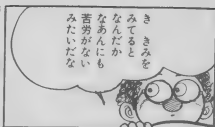 き　きみを
みてると
なんだか
なあんにも
苦労がない
みたいだな